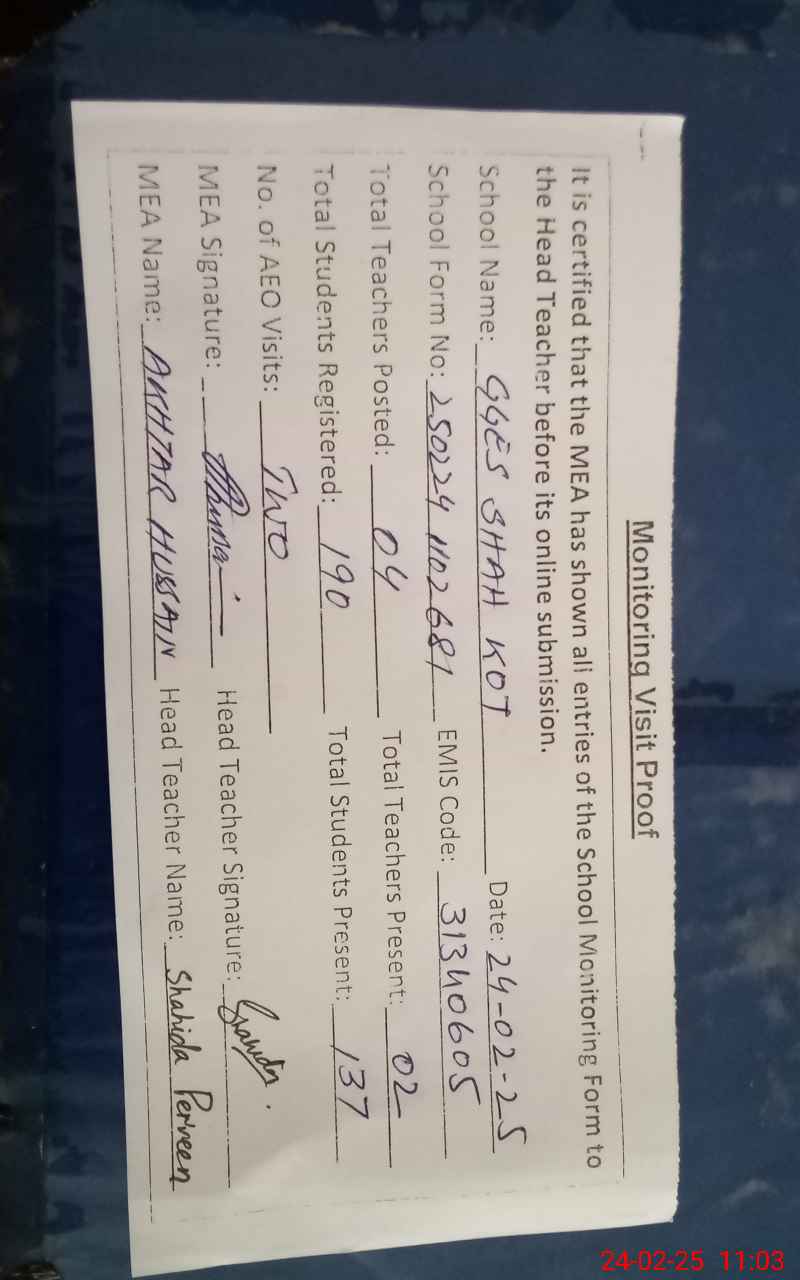 Monitoring Visit Proof
It is certified that the MEA has shown all entries of the School Monitoring Form to
the Head Teacher before its online submission.
School Name: GGES SHAH KOT Date: 24-02-25
School Form No: 250224 1102681 EMIS Code: 31340605
Total Teachers Posted: 04 Total Teachers Present: 02
Total Students Registered: 190 Total Students Present: 137
No. of AEO Visits: TWO
MEA Signature: Head Teacher Signature:
MEA Name: AKHTAR HUSSAIN Head Teacher Name: Shahida Perveen
24-02-25 11:03